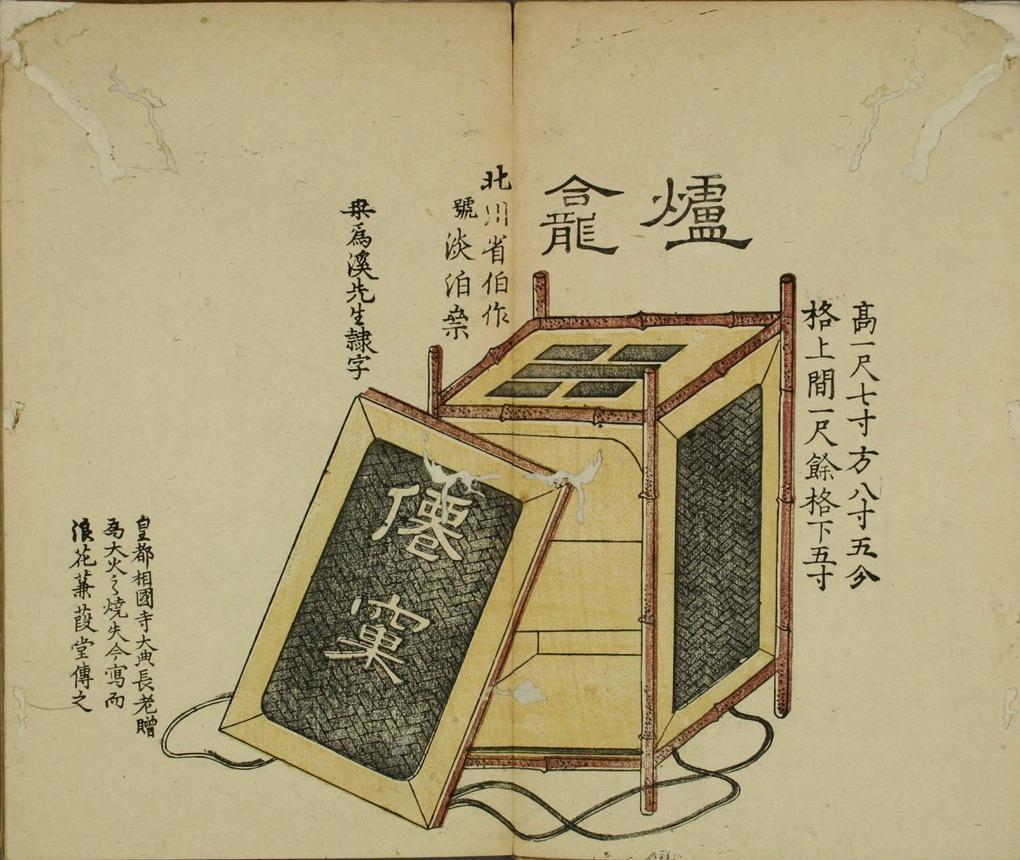 爐龕
高一尺七寸方八寸五分
格上間一尺餘格下五寸
北川省伯作
號淡泊斎
桒爲溪先生隷字
僊窠
皇都相國寺大典長老贈
爲大火之燒失今寫而
浪花蒹葭堂傳之